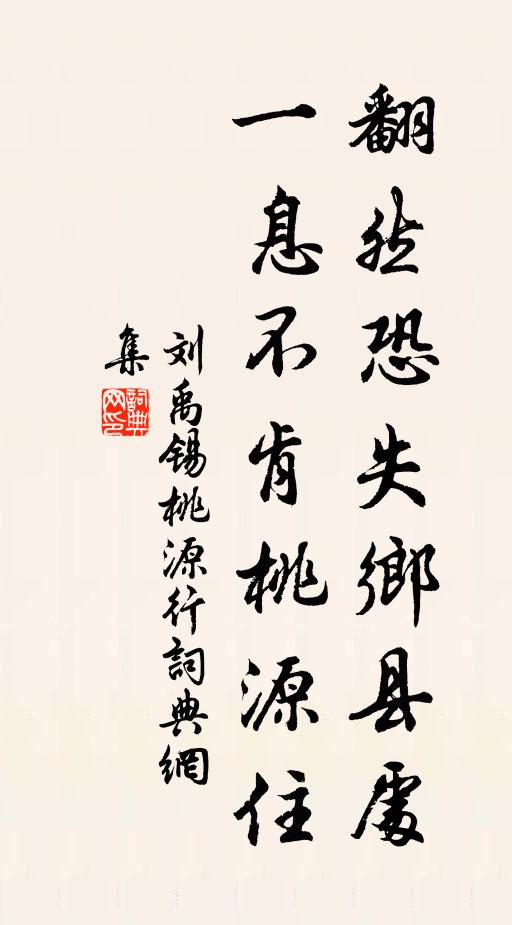 翻然恐失鄉县處
一息不肯桃源住
刘禹锡桃源行詞典網
集
詞典网印